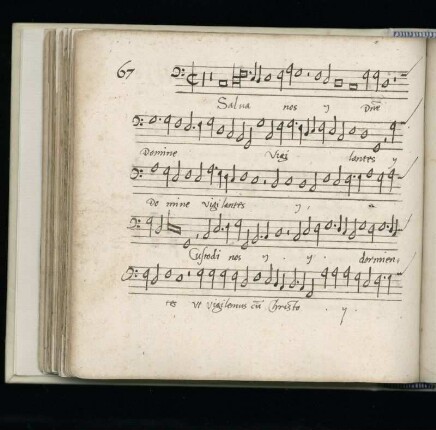 67
Salva nos ij Dñe
Domine Vigi lantes ij
Do mine vigilantes ij
Custodi nos ij ij dormien,
tes ut vigilemus cũ Christo ij